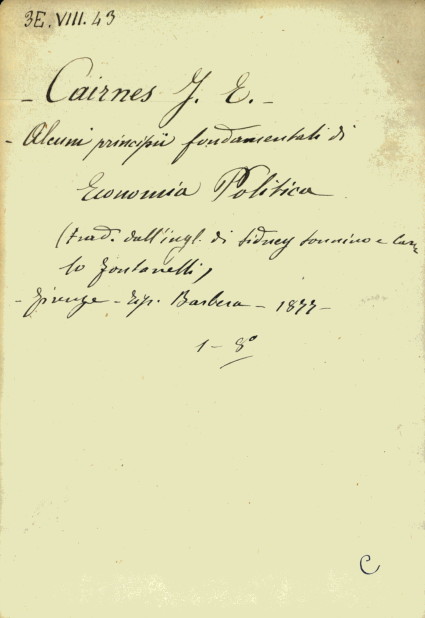 3E. VIII. 43
- Cairnes J. E. -
- Alcuni principii fondamentali di
Economia Politica
(trad. dall'ingl. di Sidney Sonnino e Car-
lo Fontanelli)
- Firenze - Tip. Barbera - 1877 -
1 - 8°
C